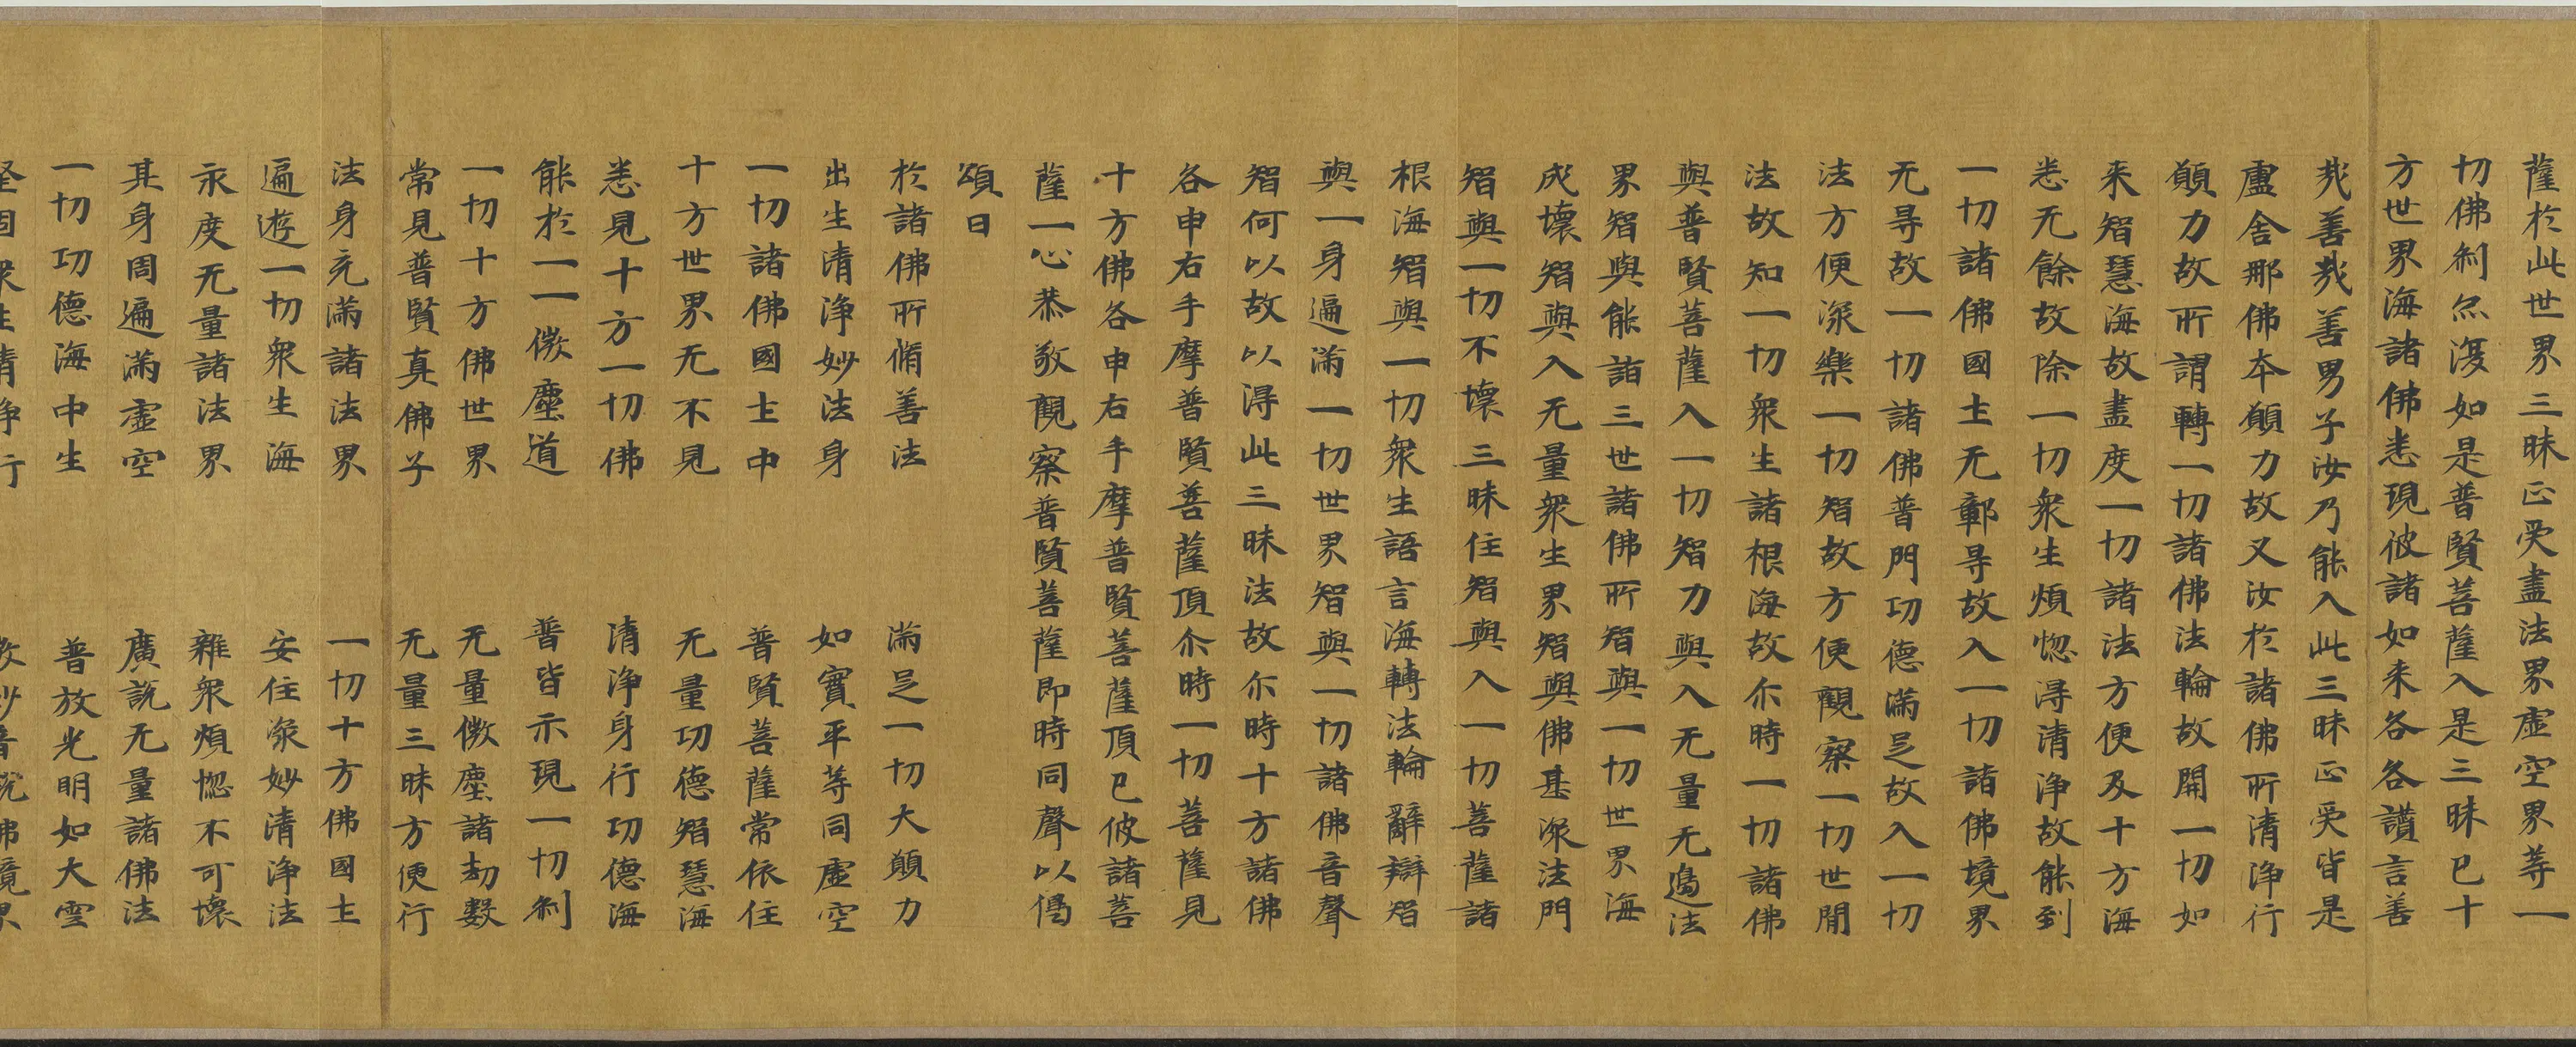 薩於此世界三昧正受盡法界虛空界等一
切佛刹亦復如是普賢菩薩入是三昧已十
方世界海諸佛悉現彼諸如来各各讃言善
㢤善㢤善男子汝乃能入此三昧正受皆是
盧舍那佛本願力故又汝於諸佛所清淨行
願力故所謂轉一切諸佛法輪故開一切如
来智慧海故盡度一切諸法方便及十方海
悉无餘故除一切衆生煩惱得清淨故能到
一切諸佛國土无鄣㝵故入一切諸佛境界
无㝵故一切諸佛普門功德滿足故入一切
法方便深樂一切智故方便觀察一切世間
法故知一切衆生諸根海故尒時一切諸佛
與普賢菩薩入一切智力與入无量无邊法
界智與能詣三世諸佛所智與一切世界海
成壞智與入无量衆生界智與佛甚深法門
智與一切不壞三昧住智與入一切菩薩諸
根海智與一切衆生語言海轉法輪辭辯智
與一身遍滿一切世界智與一切諸佛音聲
智何以故以得此三昧法故尒時十方諸佛
各申右手摩普賢菩薩頂尒時一切菩薩見
十方佛各申右手摩普賢菩薩頂已彼諸菩
薩一心恭敬觀察普賢菩薩即時同聲以偈
頌曰
於諸佛所脩善法 滿足一切大願力
出生清淨妙法身 如實平等同虛空
一切諸佛國土中 普賢菩薩常依住
十方世界无不見 无量功德智慧海
悉見十方一切佛 清淨身行功德海
能於一一微塵道 普皆示現一切刹
一切十方佛世界 无量微塵諸劫數
常見普賢真佛子 无量三昧方便行
法身充滿諸法界 一切十方佛國土
遍遊一切衆生海 安住深妙清淨法
永度无量諸法界 雜衆煩惱不可壞
其身周遍滿虛空 廣說无量諸佛法
一切功德海中生 普放光明如大雲
堅固衆生清淨行 教妙音說佛境界